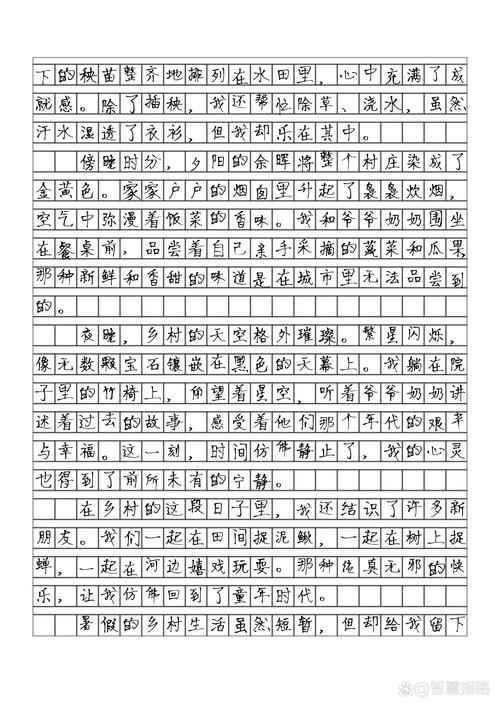 下的秧苗整齐地排列在水田里，心中充满了成
就感。除了插秧，我还帮忙除草、浇水，虽然
汗水湿透了衣衫，但我却乐在其中。
傍晚时分，夕阳的余晖将整个村庄染成了
金黄色。家家户户的烟囱里升起了袅袅炊烟，
空气中弥漫着饭菜的香味。我和爷爷奶奶围坐
在餐桌前，品尝着自己亲手采摘的蔬菜和瓜果，
那种新鲜和香甜的味道是在城市里无法品尝到
的。
夜晚，乡村的天空格外璀璨。繁星闪烁，
像无数颗宝石镶嵌在黑色的天幕上。我躺在院
子里的竹椅上，仰望着星空，听着爷爷奶奶讲
述着过去的故事，感受着他们那个年代的艰辛
与幸福。这一刻，时间仿佛静止了，我的心灵
也得到了前所未有的宁静。
在乡村的这段日子里，我还结识了许多新
朋友。我们一起在田间捉泥鳅，一起在树上捉
蝉，一起在河边嬉戏玩耍。那种纯真无邪的快
乐，让我仿佛回到了童年时代。
暑假的乡村生活虽然短暂，但却给我留下
智慧指路